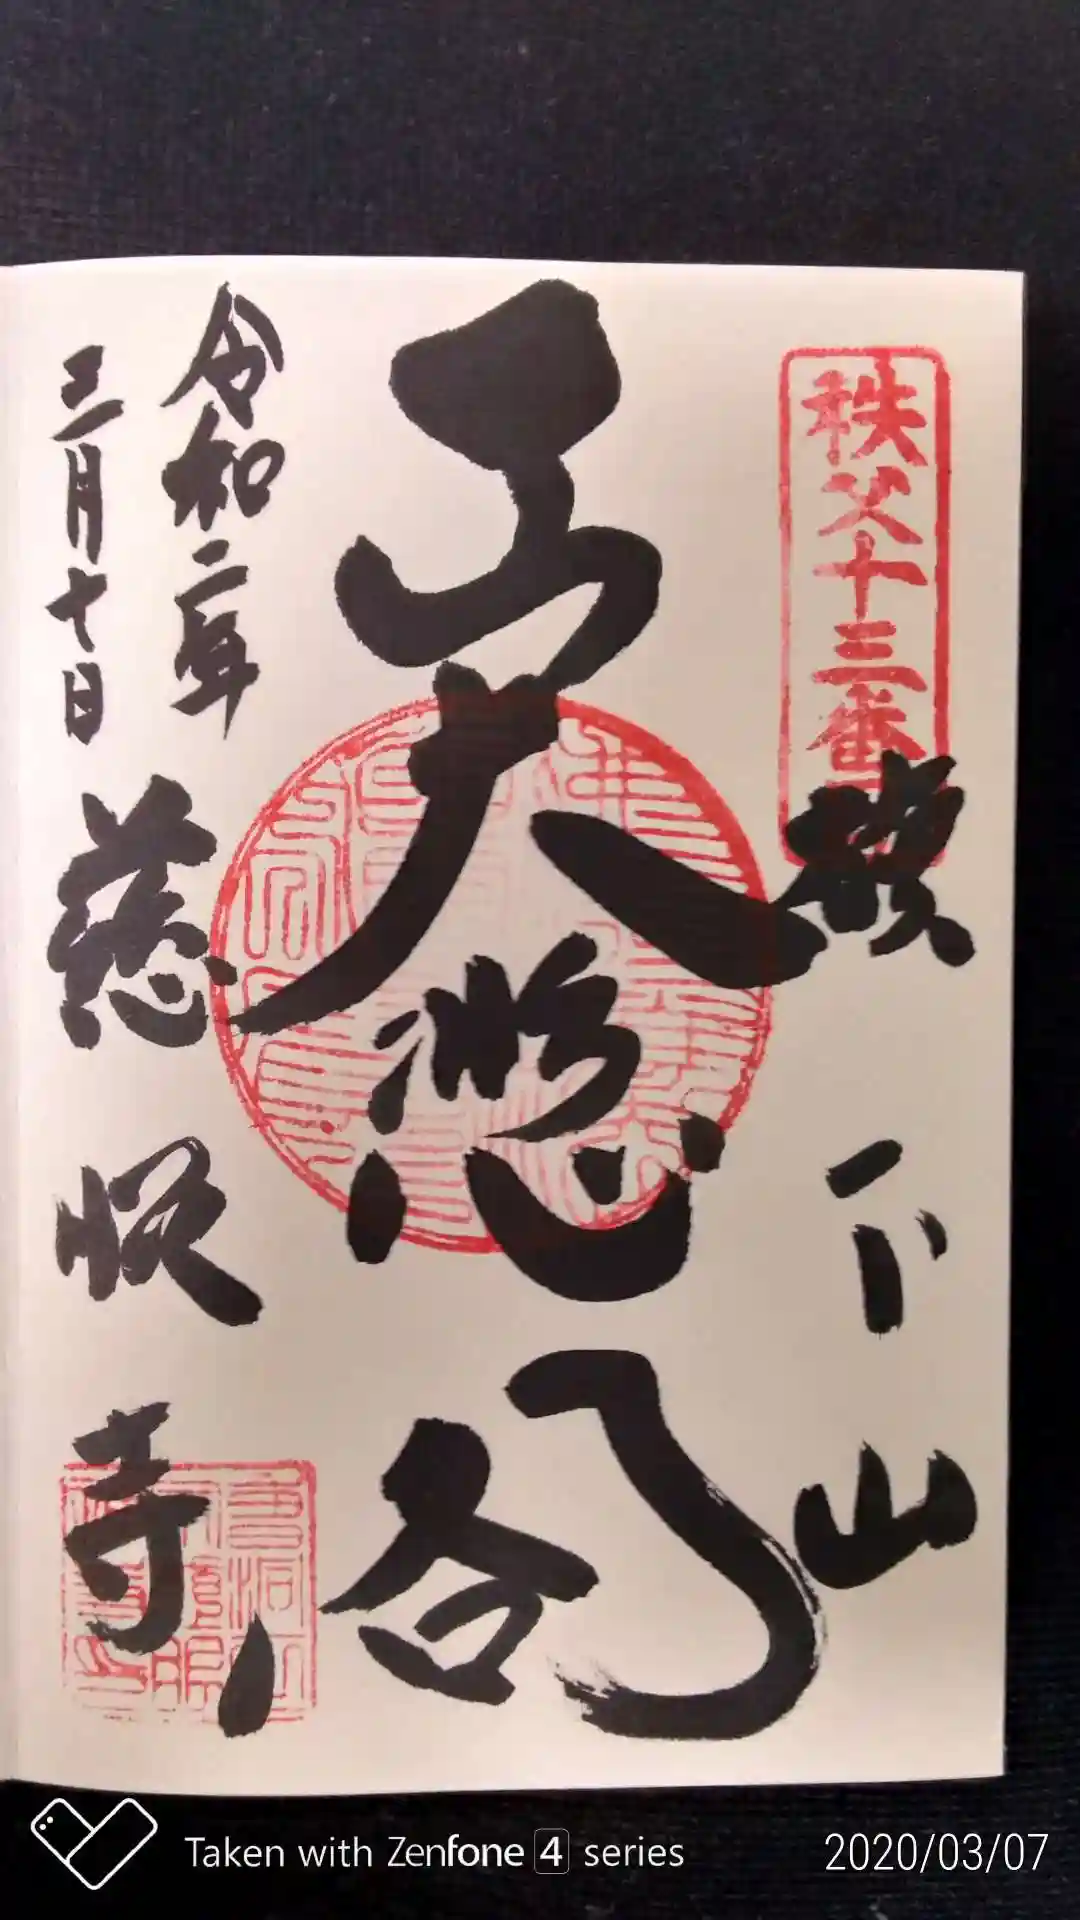 秩父十三番
旗下山
大悲閣
令和二年
三月七日
慈眼寺
Taken with Zenfone 4 series
2020/03/07